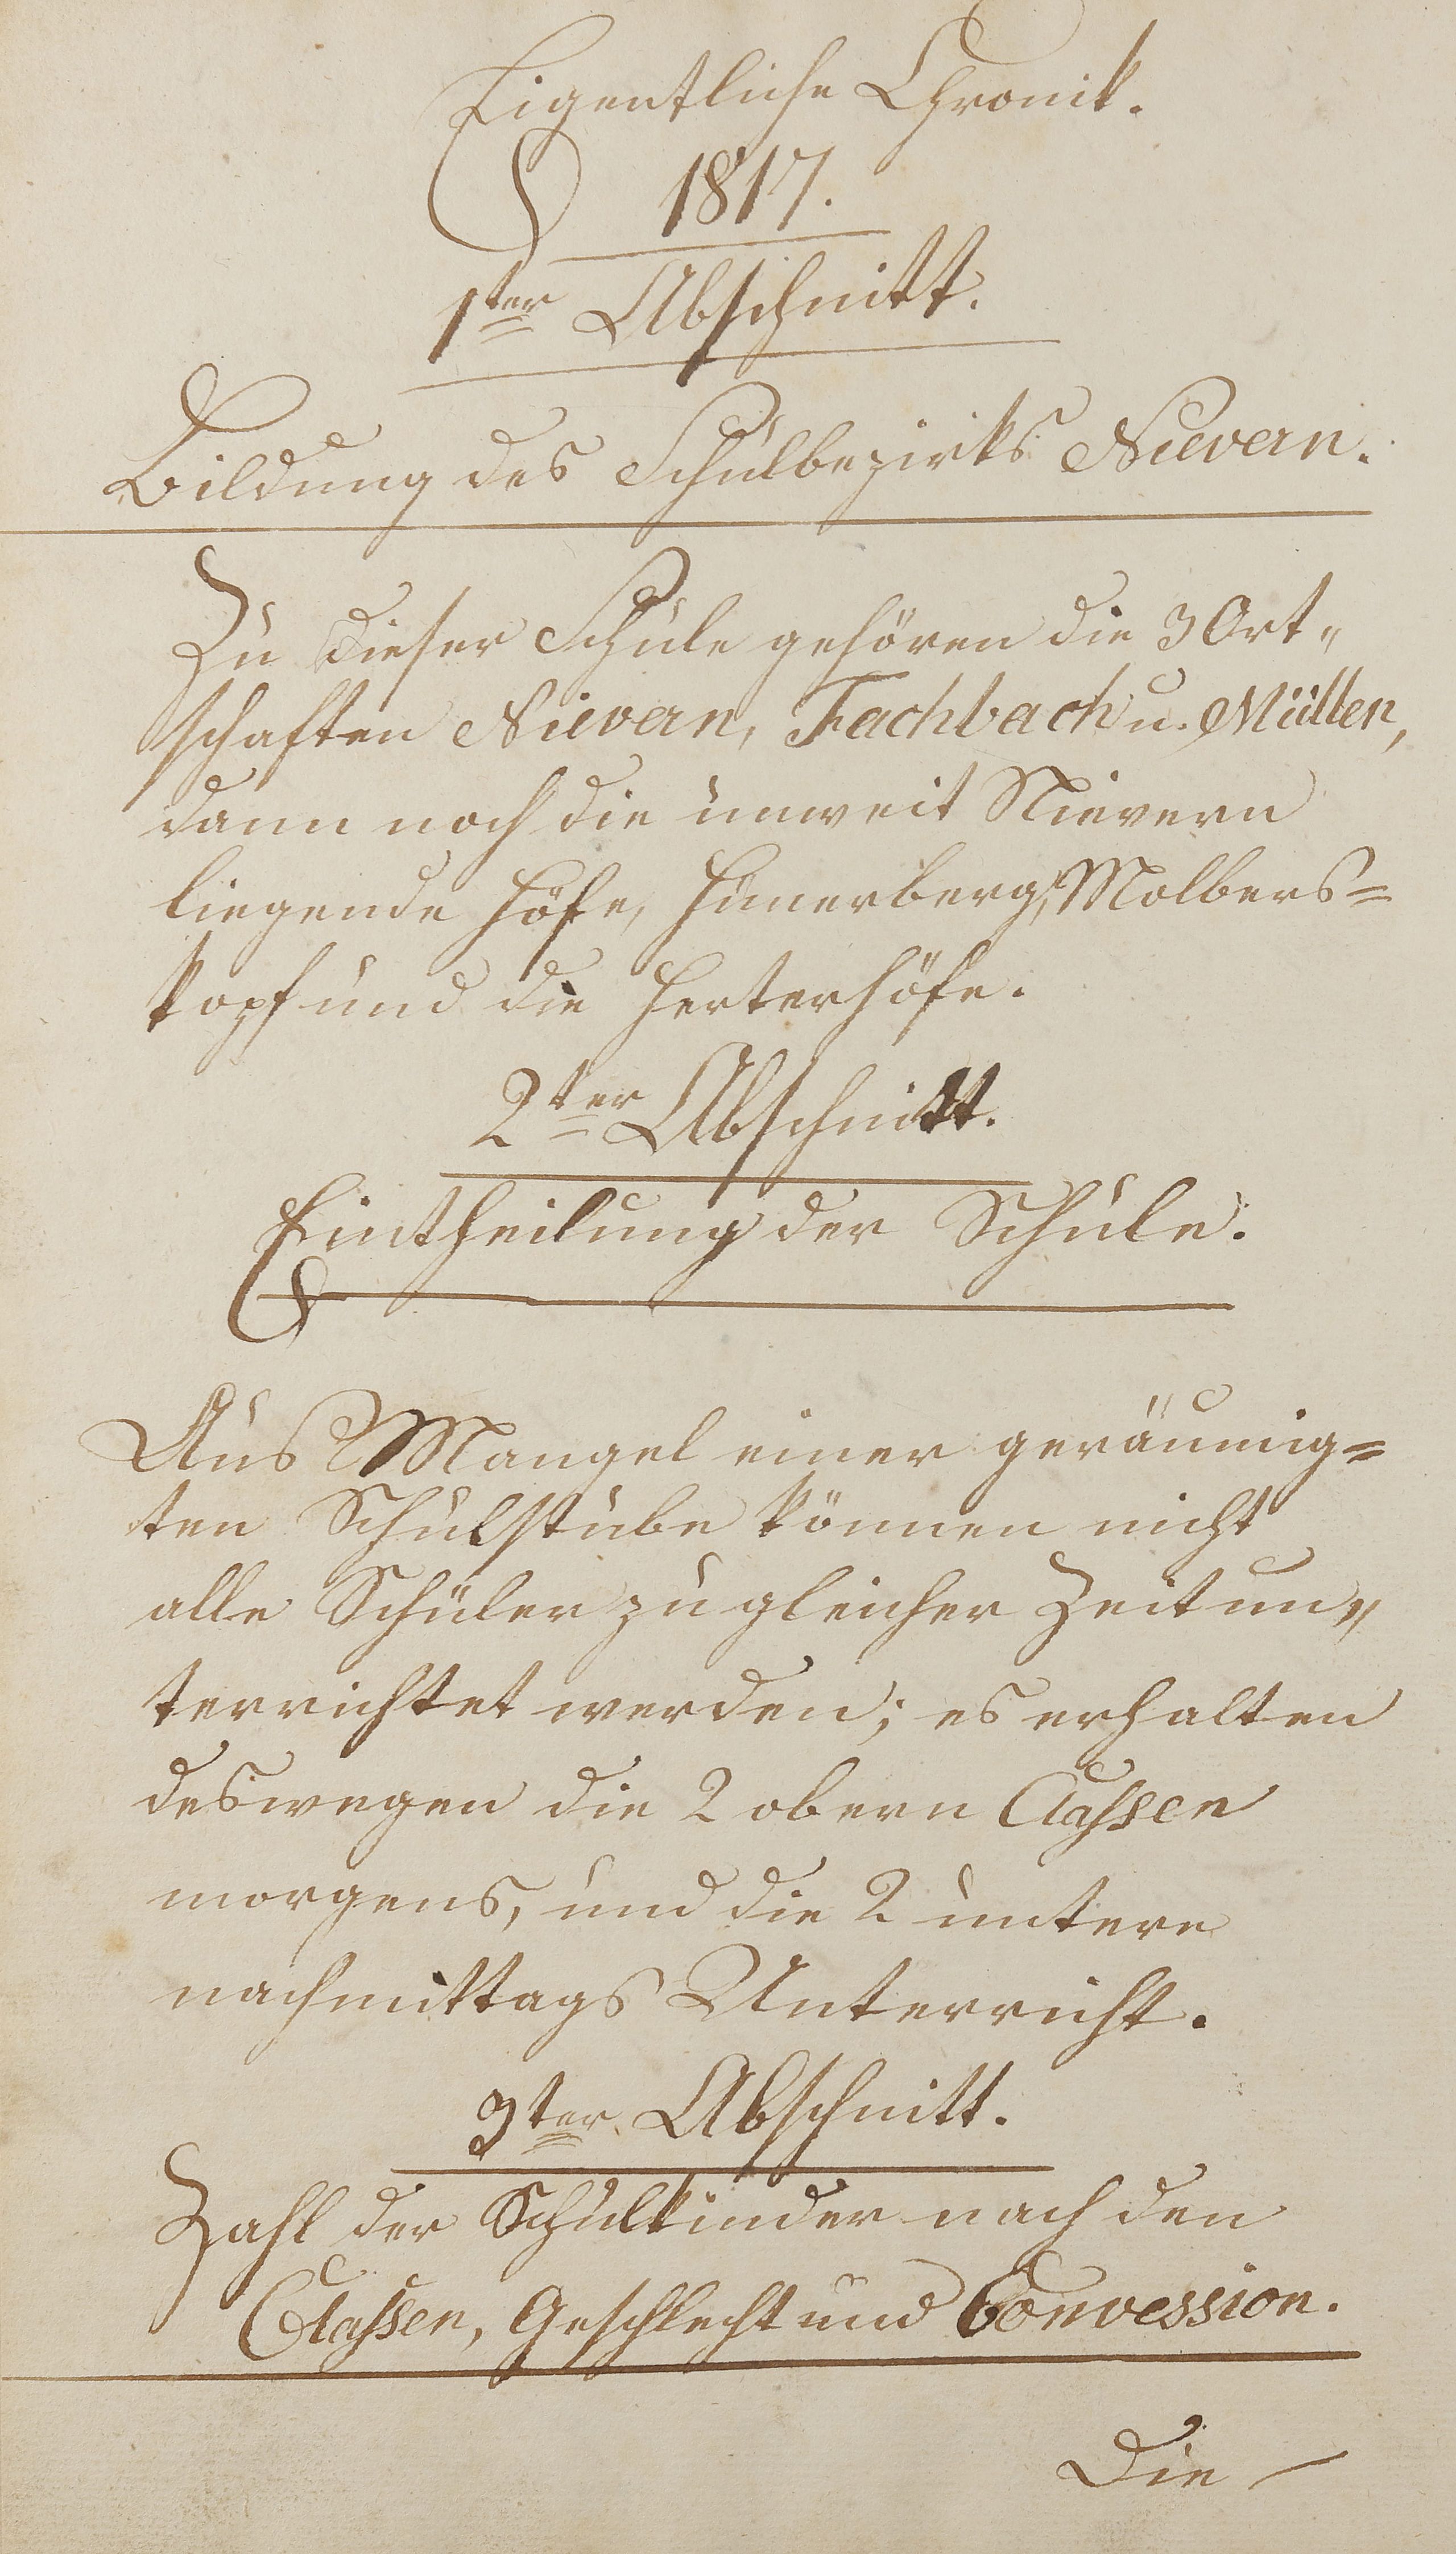 Eigentliche Chronik.
1817.
1ter Abschnitt.
Bildung des Schulbezirks Nievern.
Zu dieser Schule gehören die 3 Ort„
schaften Nievern, Fachbach u. Müllen,
dann noch die unweit Nievern
liegende Höfe, Hünerberg, Molbers=
kopf und die Herterhöfe.
2ter Abschnitt.
Eintheilung der Schule.
Aus Mangel einer geräumig=
ten Schulstube können nicht
alle Schüler zu gleicher Zeit un„
terrichtet werden; es erhalten
deswegen die 2 obern Classen
morgens, und die 2 untere
nachmittags Unterricht.
3ter Abschnitt.
Zahl der Schulkinder nach den
Classen, Geschlecht und Convession.
Die